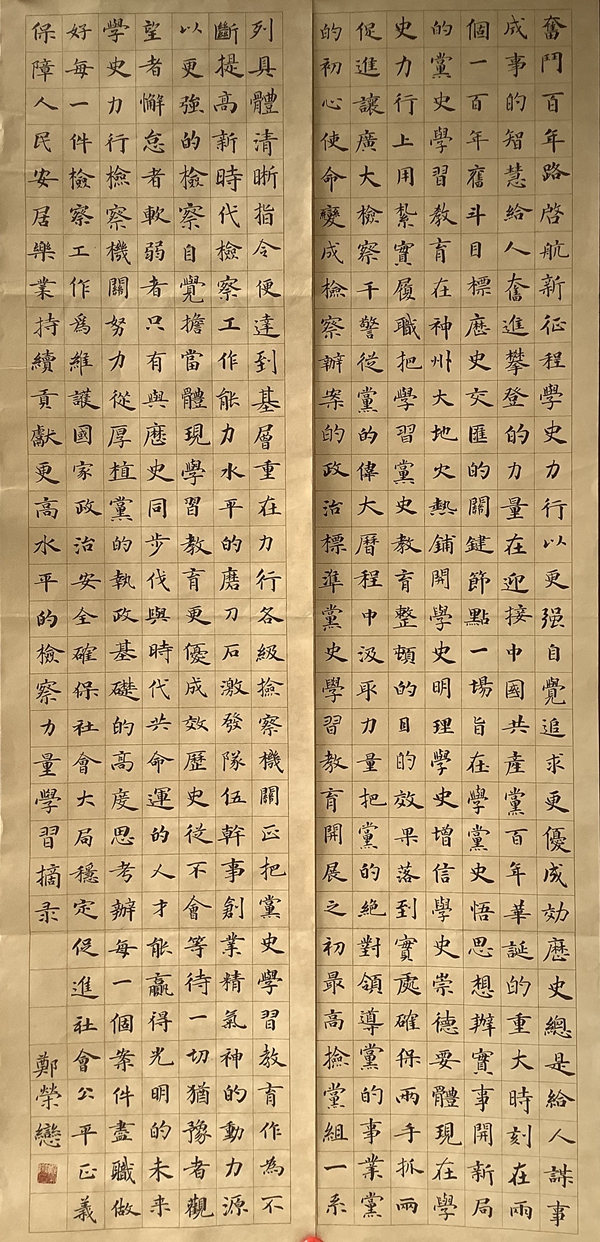 奮鬥百年路啓航新征程學史力行以更强自覺追求更優成効歷史總是給人謀事
成事的智慧給人奮進攀登的力量在迎接中國共產黨百年華誕的重大時刻在兩
個一百年奮斗目標歷史交匯的關鍵節點一場旨在學黨史悟思想辦實事開新局
的黨史學習教育在神州大地火熱鋪開學史明理學史增信學史崇德要體現在學
史力行上用紮實履職把學習黨史教育整頓的目的效果落到實處確保兩手抓兩
促進讓廣大檢察干警從黨的偉大曆程中汲取力量把黨的絶對領導黨的事業黨
的初心使命變成檢察辦案的政治標準黨史學習教育開展之初最高撿黨組一系
列具體清晰指令便達到基層重在力行各級撿察機關正把黨史學習教育作為不
斷提高新時代檢察工作能力水平的磨刀石激發隊伍幹事創業精氣神的動力源
以更強的檢察自覺擔當體現學習教育更優成效歷史從不會等待一切猶豫者觀
望者懈怠者軟弱者只有與歷史同步伐與時代共命運的人才能贏得光明的未来
學史力行撿察機關努力從厚植黨的執政基礎的高度思考辦每一個案件盡職做
好每一件檢察工作為維護國家政治安全確保社會大局穩定促進社會公平正義
保障人民安居樂業持續貢獻更高水平的檢察力量學習摘录
鄭榮戀